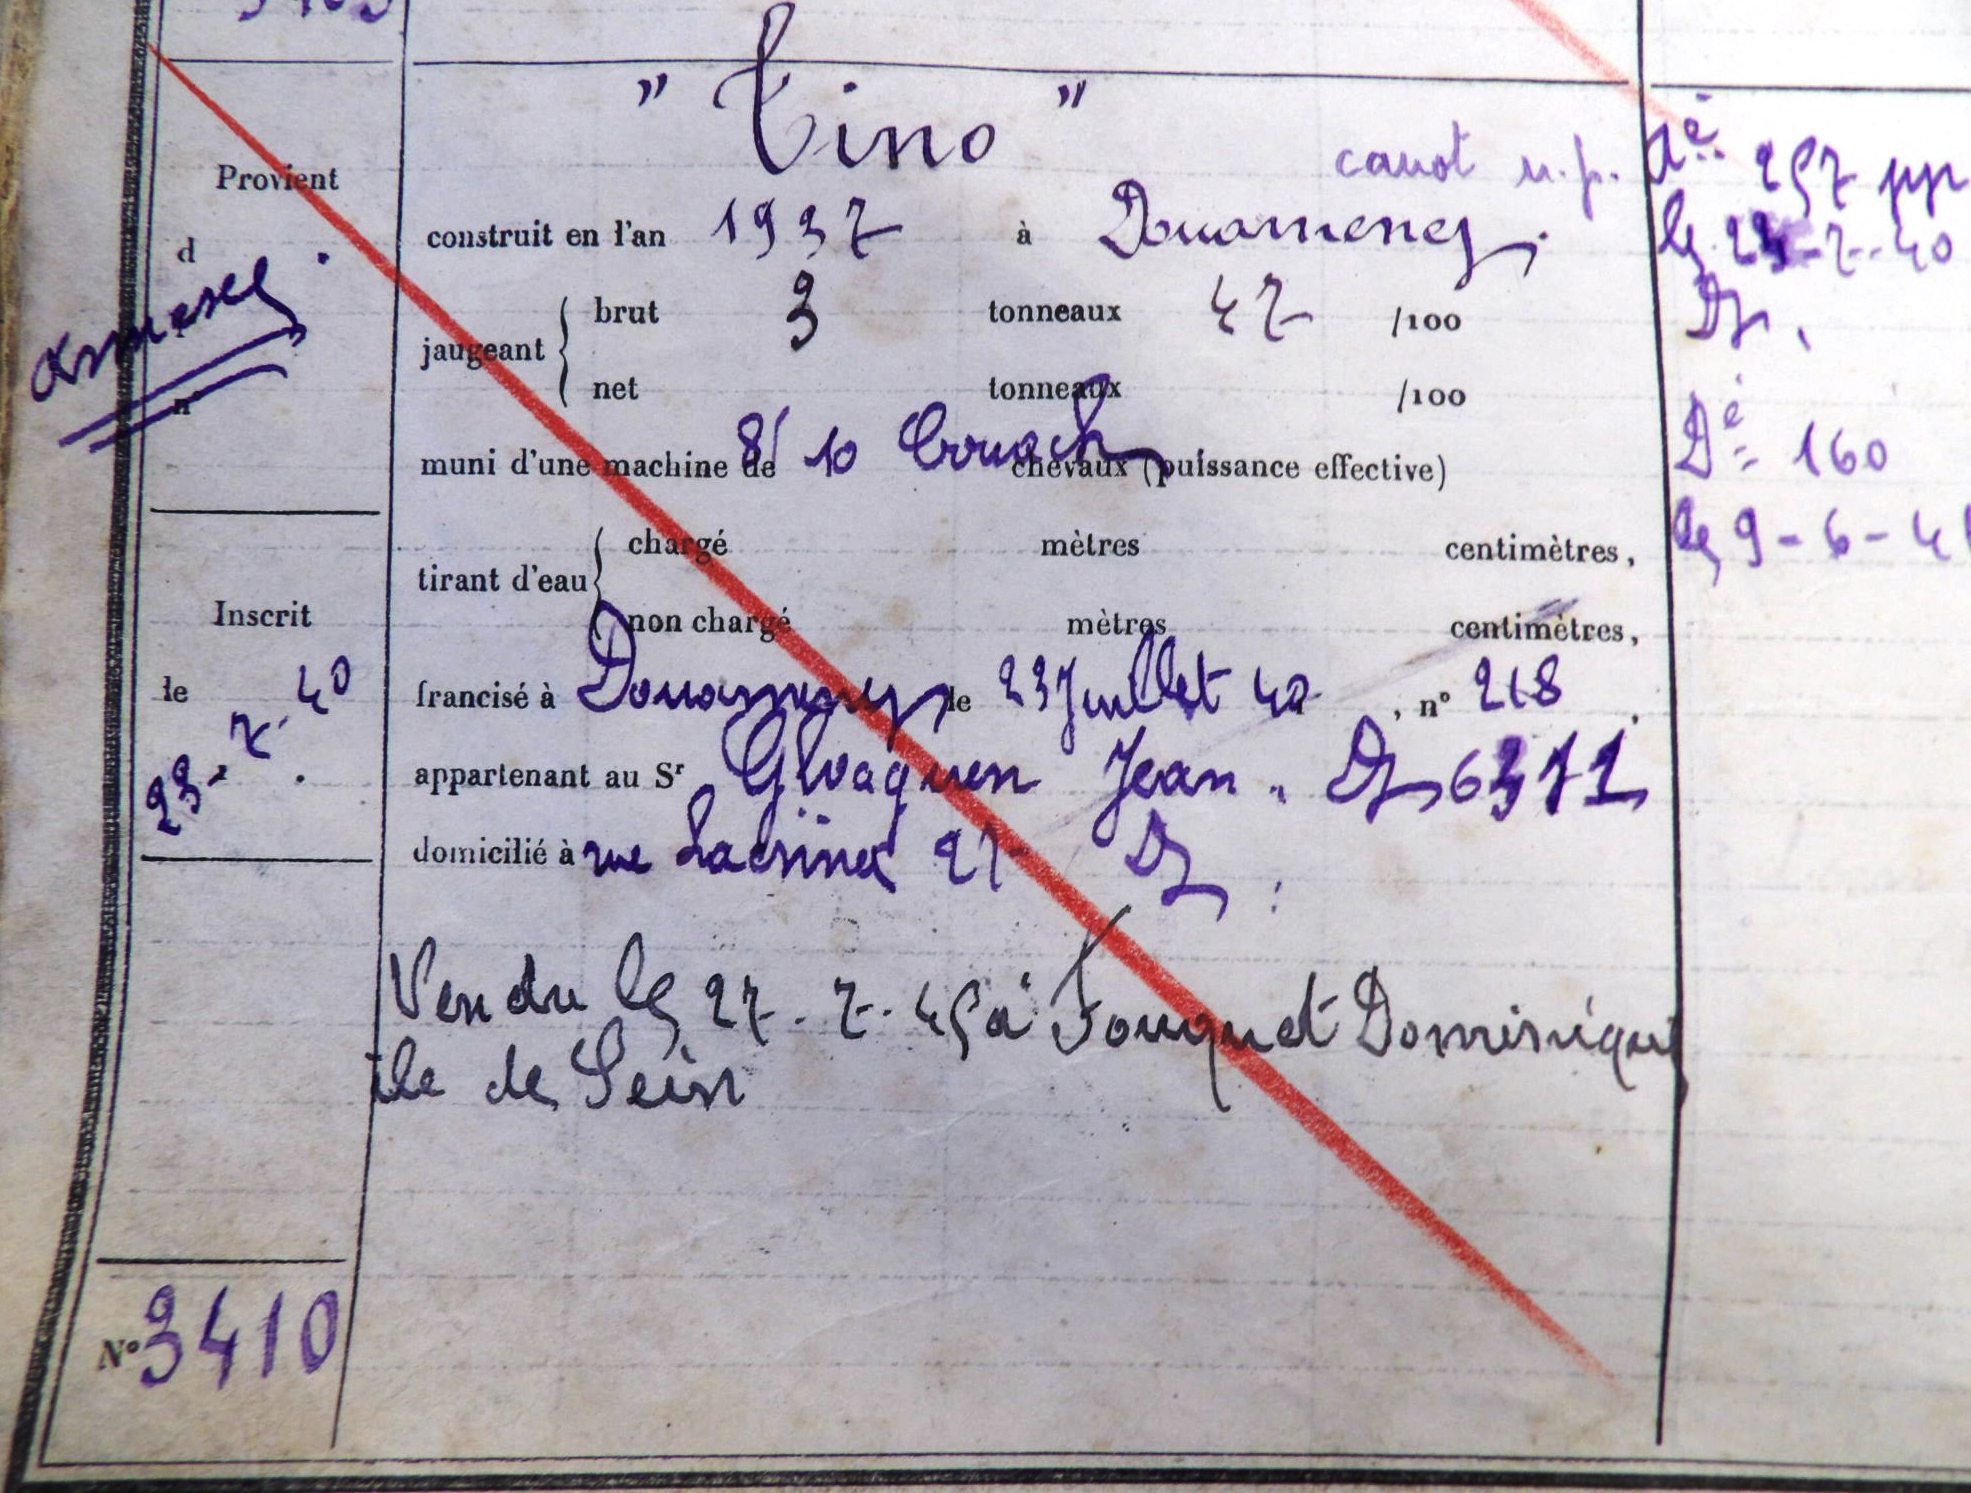 " Tino "
Provient
canot n.p.
Dé 257 pp
d
construit en l'an 1937 à Douarnenez.
le 23-7-40
Dz.
Armesel
jaugeant { brut 3 tonneaux 47 /100
net tonneaux /100
n°
muni d'une machine de 8/10 Couach chevaux (puissance effective)
Dé 160
le 9-6-41
tirant d'eau { chargé mètres centimètres,
non chargé mètres centimètres,
Inscrit
le 23-7-40
francisé à Douarnenez le 23 Juillet 40, n° 218.
appartenant au Sr Gloaguen Jean. Dz 6311
domicilié à rue 21 Dz
Vendu le 27.7.45 à Fouquet Dominique
île de Sein
N° 3410